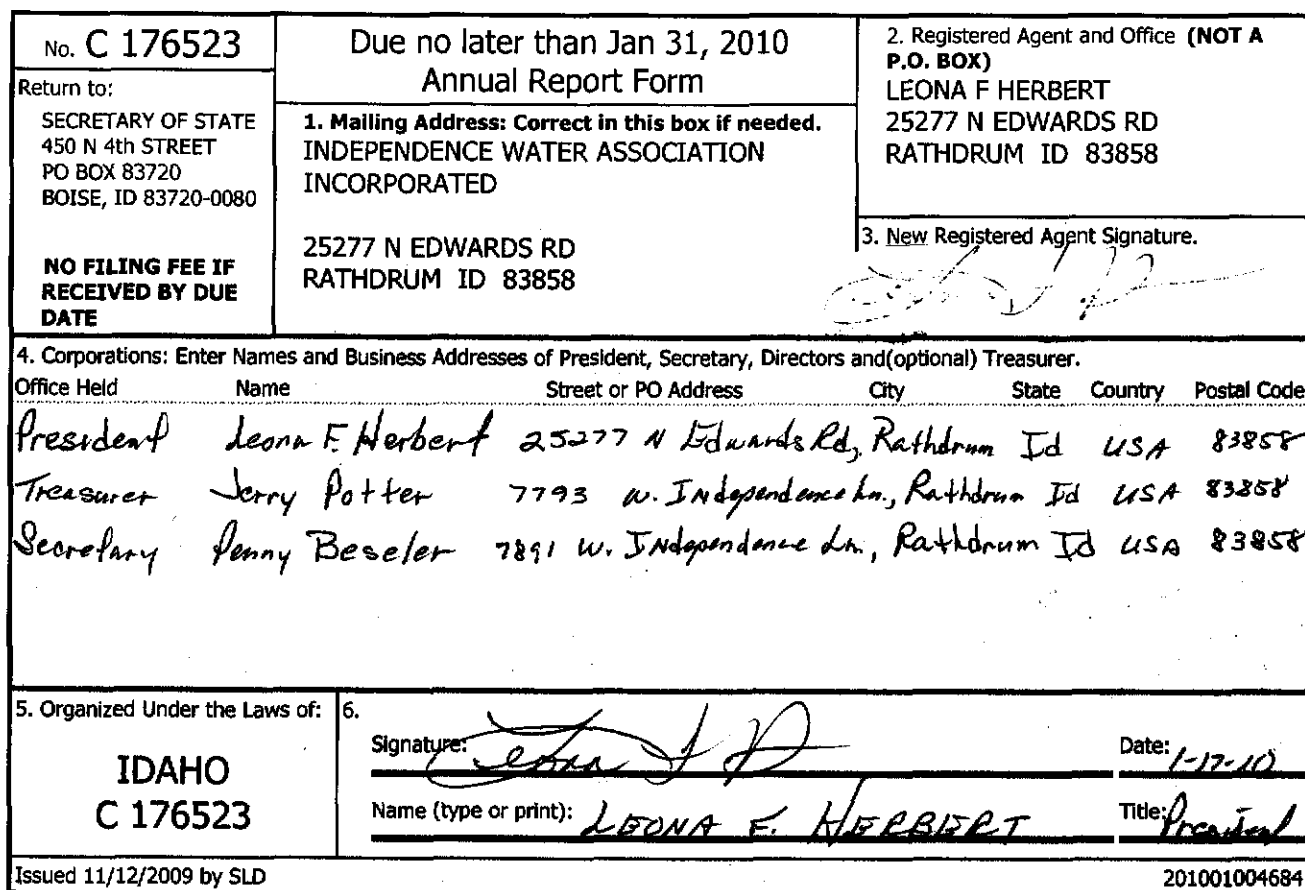 No. C 176523
Return to:
SECRETARY OF STATE
450 N 4th STREET
PO BOX 83720
BOISE, ID 83720-0080
NO FILING FEE IF
RECEIVED BY DUE
DATE
Due no later than Jan 31, 2010
Annual Report Form
1. Mailing Address: Correct in this box if needed.
INDEPENDENCE WATER ASSOCIATION
INCORPORATED
25277 N EDWARDS RD
RATHDRUM ID 83858
2. Registered Agent and Office (NOT A
P.O. BOX)
LEONA F HERBERT
25277 N EDWARDS RD
RATHDRUM ID 83858
3. New Registered Agent Signature.
4. Corporations: Enter Names and Business Addresses of President, Secretary, Directors and(optional) Treasurer.
Office Held Name Street or PO Address City State Country Postal Code
President Leona F. Herbert 25277 N Edwards Rd, Rathdrum Id USA 83858
Treasurer Jerry Potter 7793 W. Independence Ln., Rathdrum Id USA 83858
Secretary Penny Beseler 7891 W. Independence Ln., Rathdrum Id USA 83858
5. Organized Under the Laws of:
IDAHO
C 176523
6.
Signature: Leona F
Date: 1-17-10
Name (type or print): LEONA F. HERBERT
Title: President
Issued 11/12/2009 by SLD
201001004684